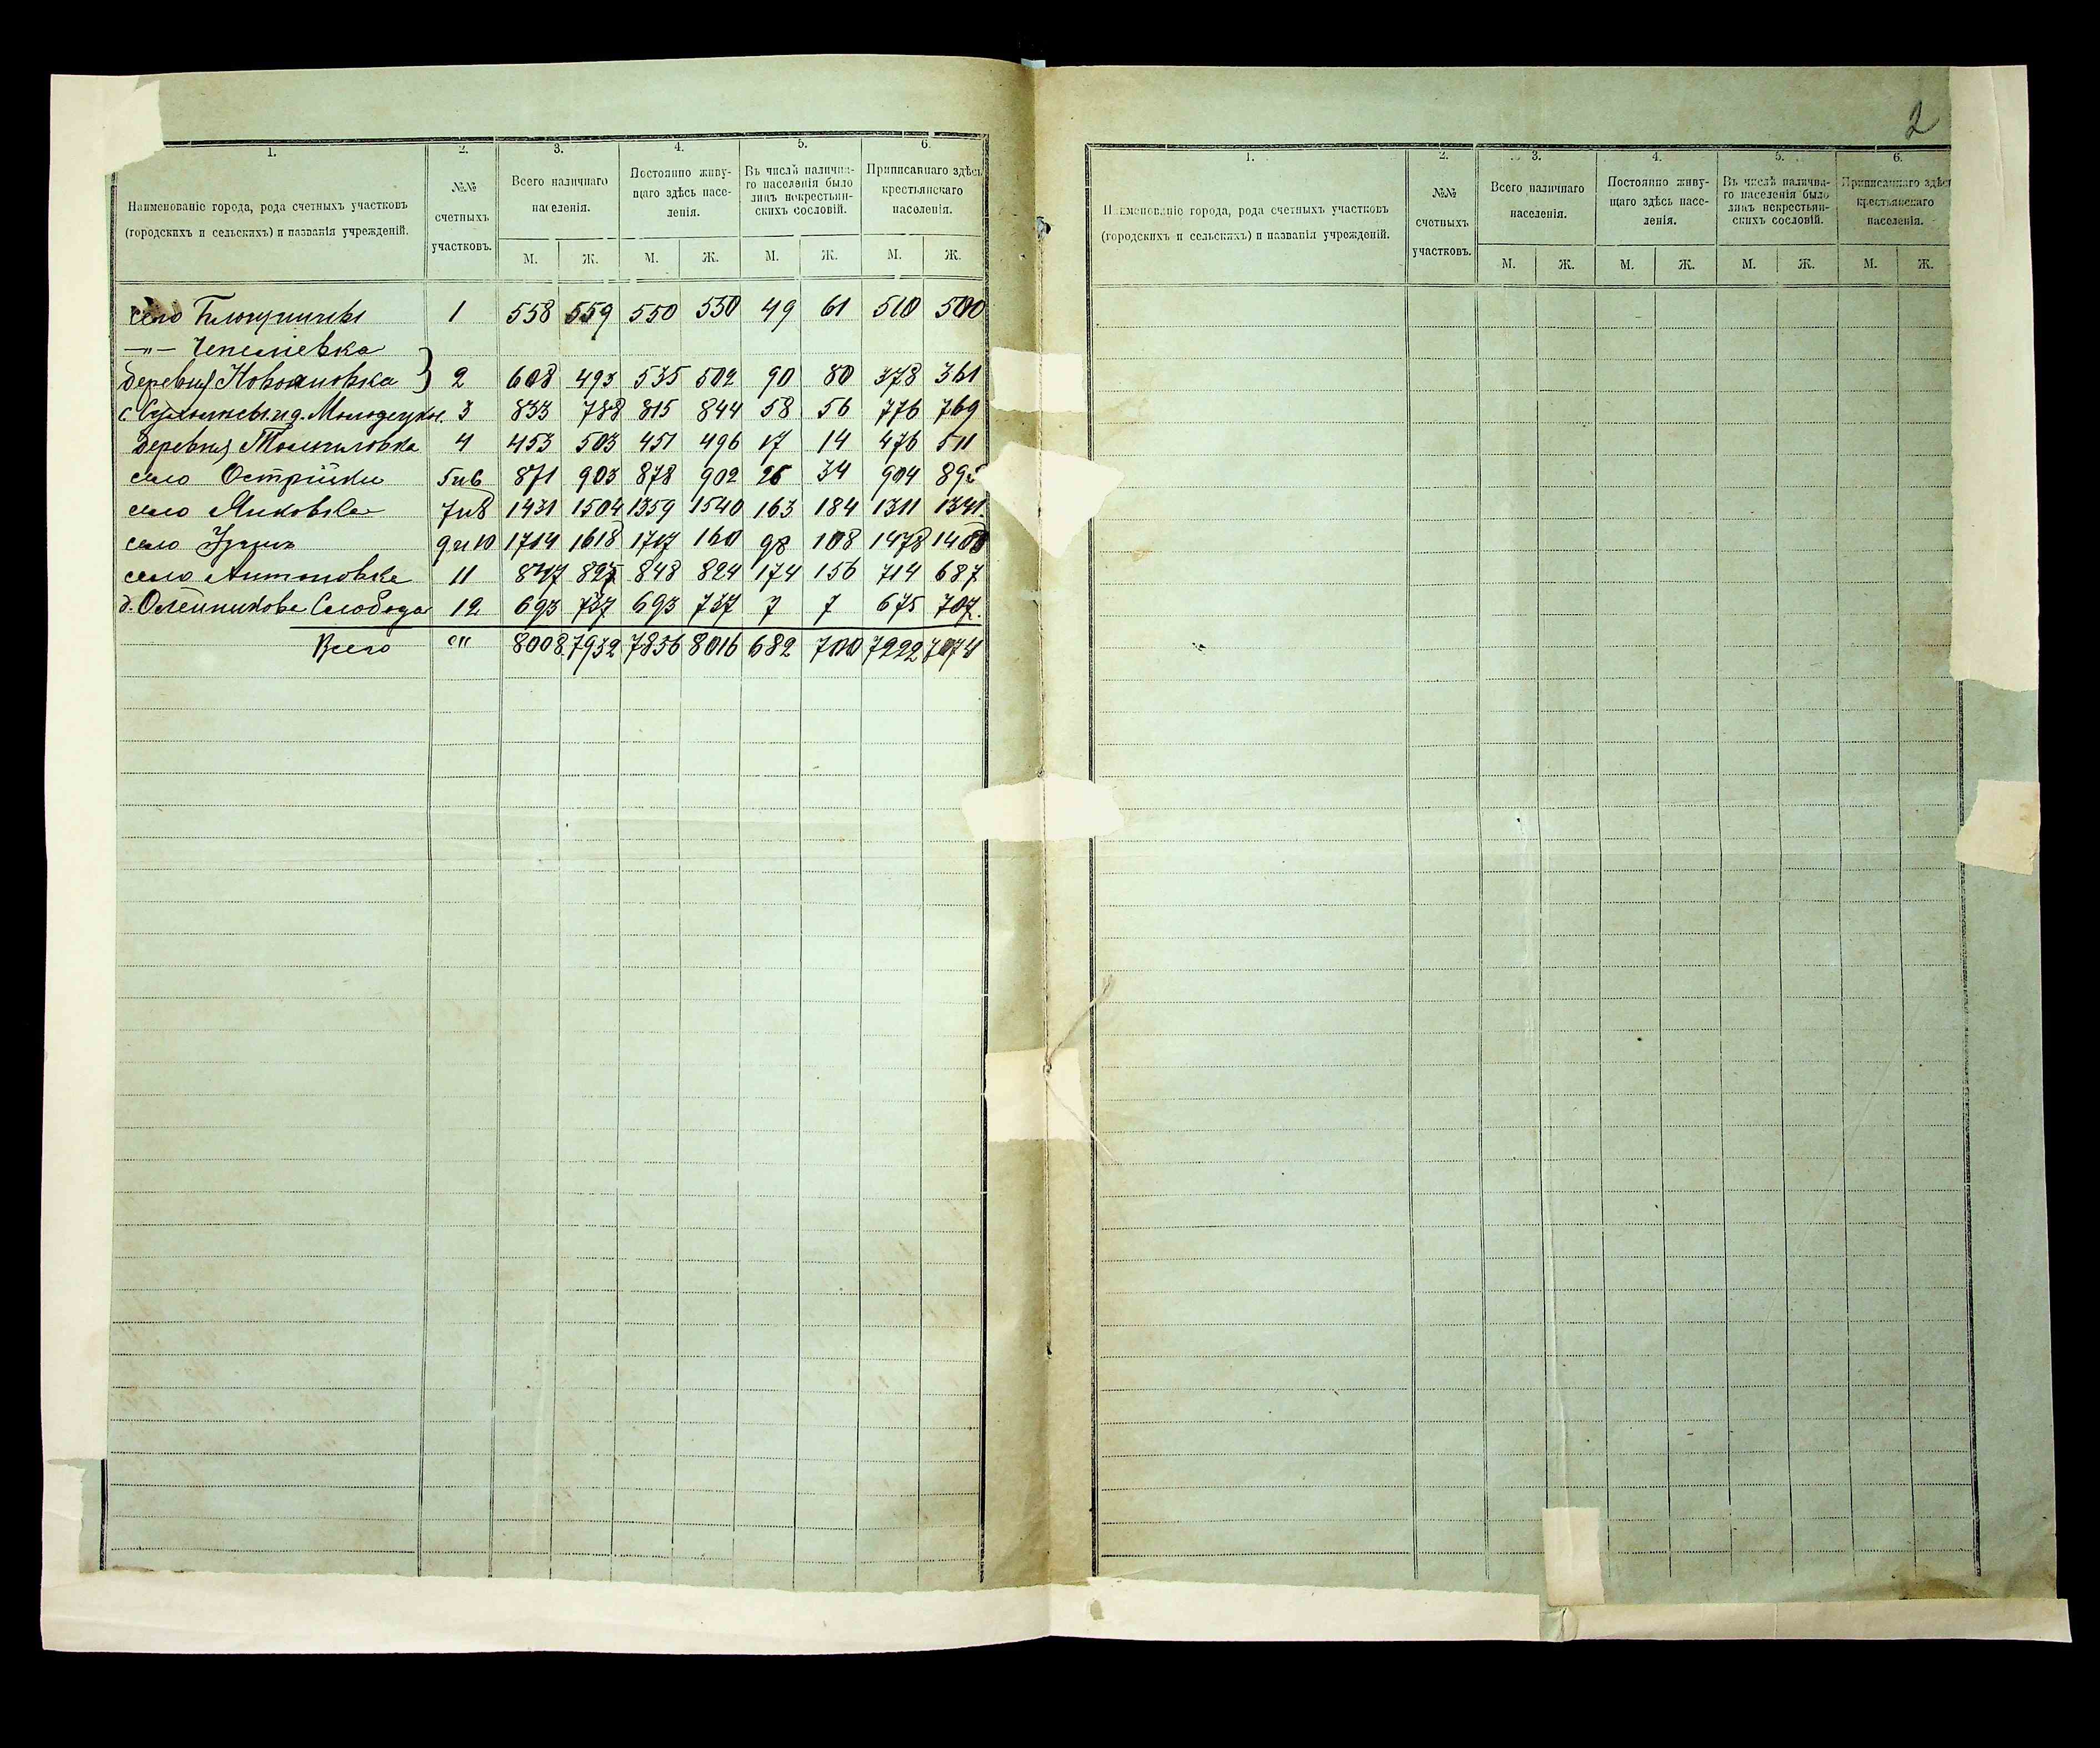 2
1. 2. 3. 4. 5. 6.
Наименованіе города, рода счетныхъ участковъ (городскихъ и сельскихъ) и названія учрежденій.
№№ счетныхъ участковъ.
Всего наличнаго населенія.
Постоянно живущаго здѣсь населенія.
Въ числѣ наличнаго населенія было лицъ некрестьянскихъ сословій.
Приписаннаго здѣсь крестьянскаго населенія.
М. Ж. М. Ж. М. Ж. М. Ж.
село 1 558 559 550 550 49 61 510 500
—"— Чепелiевка
деревня Новоановка } 2 608 493 535 502 90 80 378 361
3 833 788 815 844 58 56 776 769
деревня Томиловка 4 453 503 451 496 17 14 476 511
село Острійки 5и6 871 903 878 902 26 34 904
село Янковка 7и8 1431 1504 1359 1540 163 184 1311 1341
село Узинъ 9и10 1714 1618 1717 160 98 108 1478
село Антоновка 11 848 824 174 156 714 687
д. Олейникова Слобода 12 693 737 693 737 7 7 675 707.
Всего "" 8008 7932 7836 8016 682 700 7222 7074
1. 2. 3. 4. 5. 6.
Наименованіе города, рода счетныхъ участковъ (городскихъ и сельскихъ) и названія учрежденій.
№№ счетныхъ участковъ.
Всего наличнаго населенія.
Постоянно живущаго здѣсь населенія.
Въ числѣ наличнаго населенія было лицъ некрестьянскихъ сословій.
Приписаннаго здѣсь крестьянскаго населенія.
М. Ж. М. Ж. М. Ж. М. Ж.